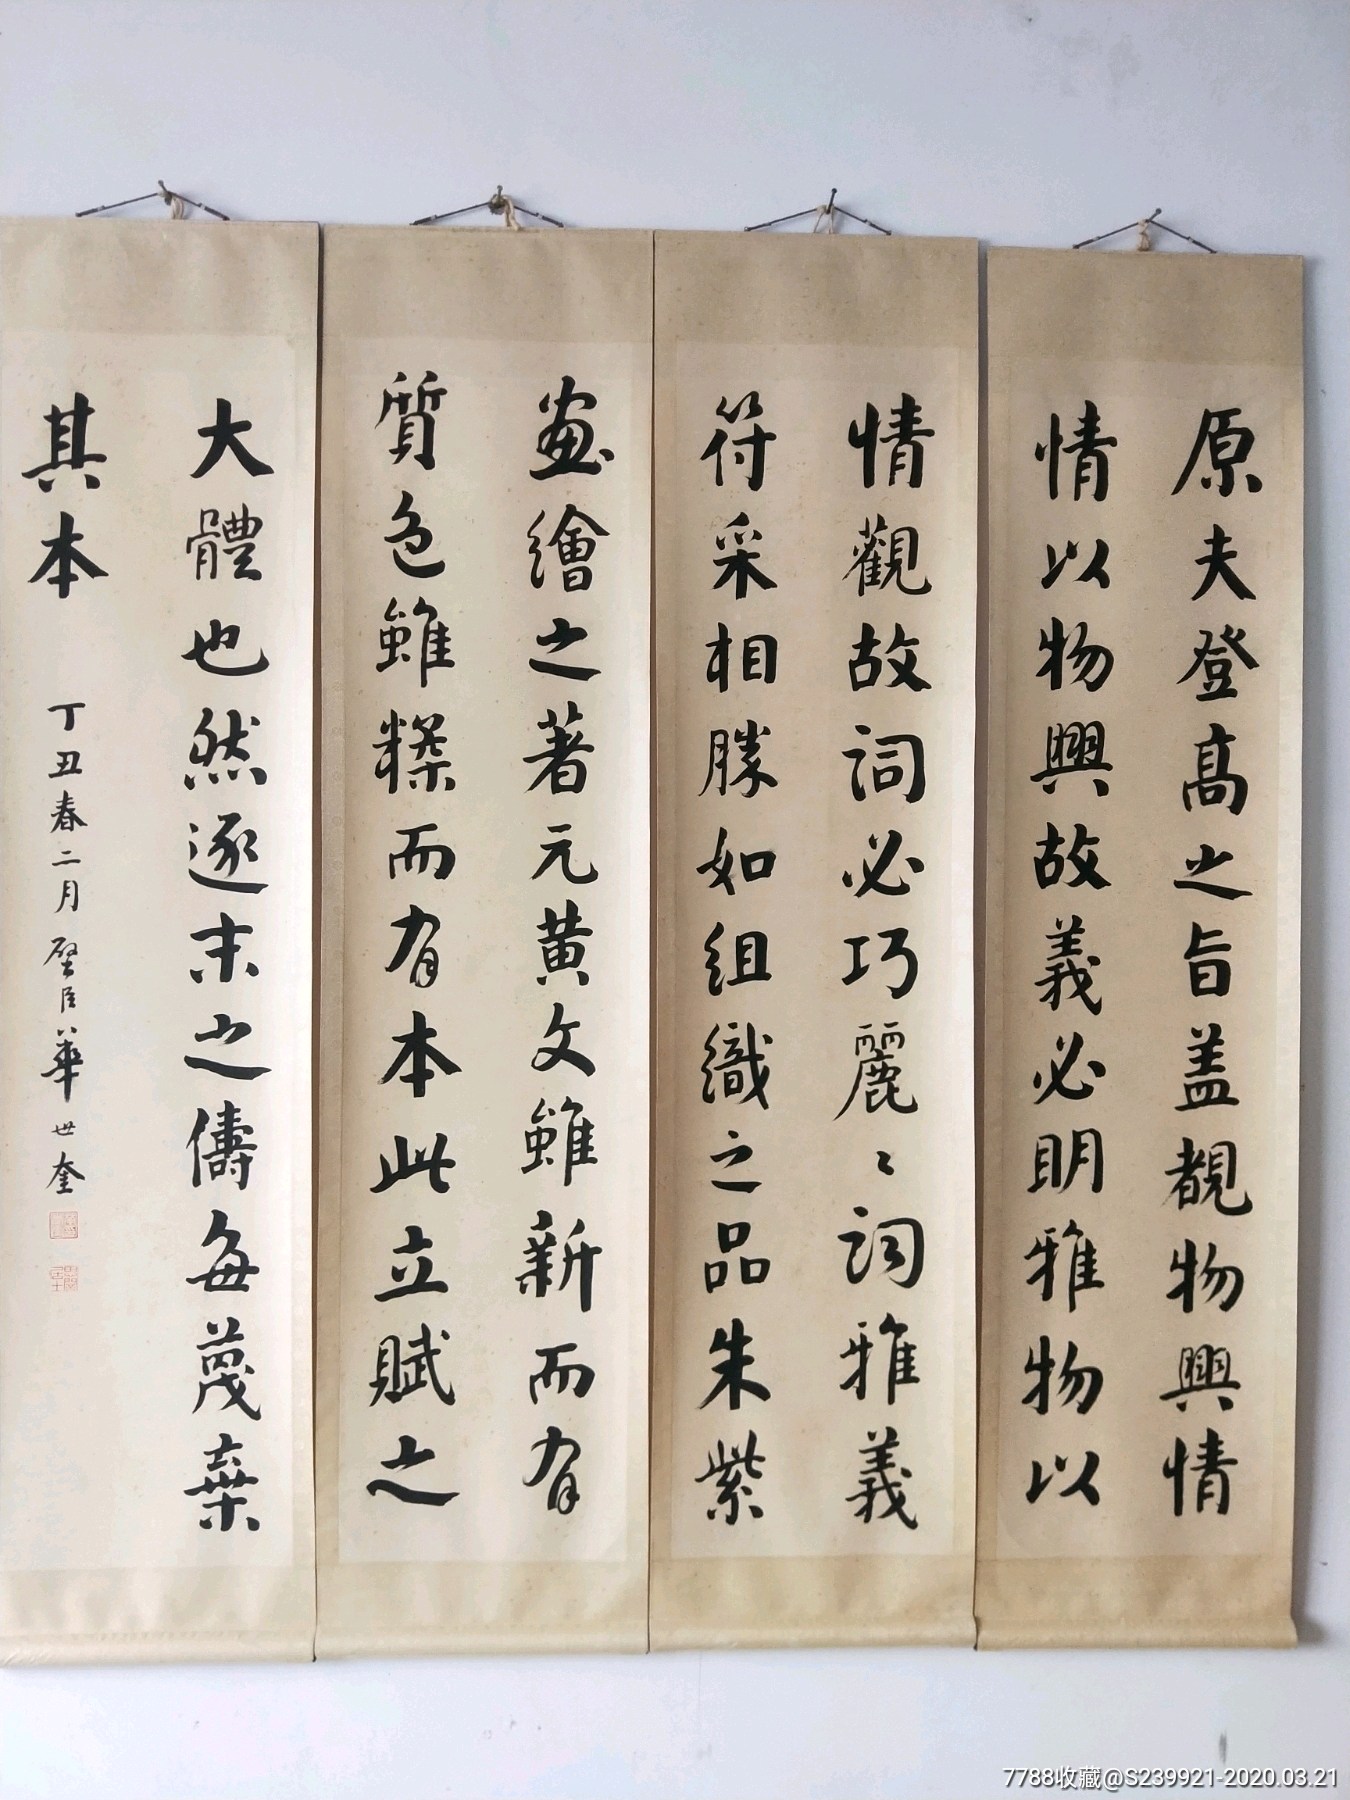 原夫登高之旨盖覩物興情
情以物興故義必明雅物以
情觀故詞必巧麗〻詞雅義
符采相勝如組織之品朱紫
畫繪之著元黄文雖新而有
質色雖糅而有本此立賦之
大體也然逐末之儔每蔑棄
其本
丁丑春二月璧臣華世奎
7788收藏@S239921-2020.03.21